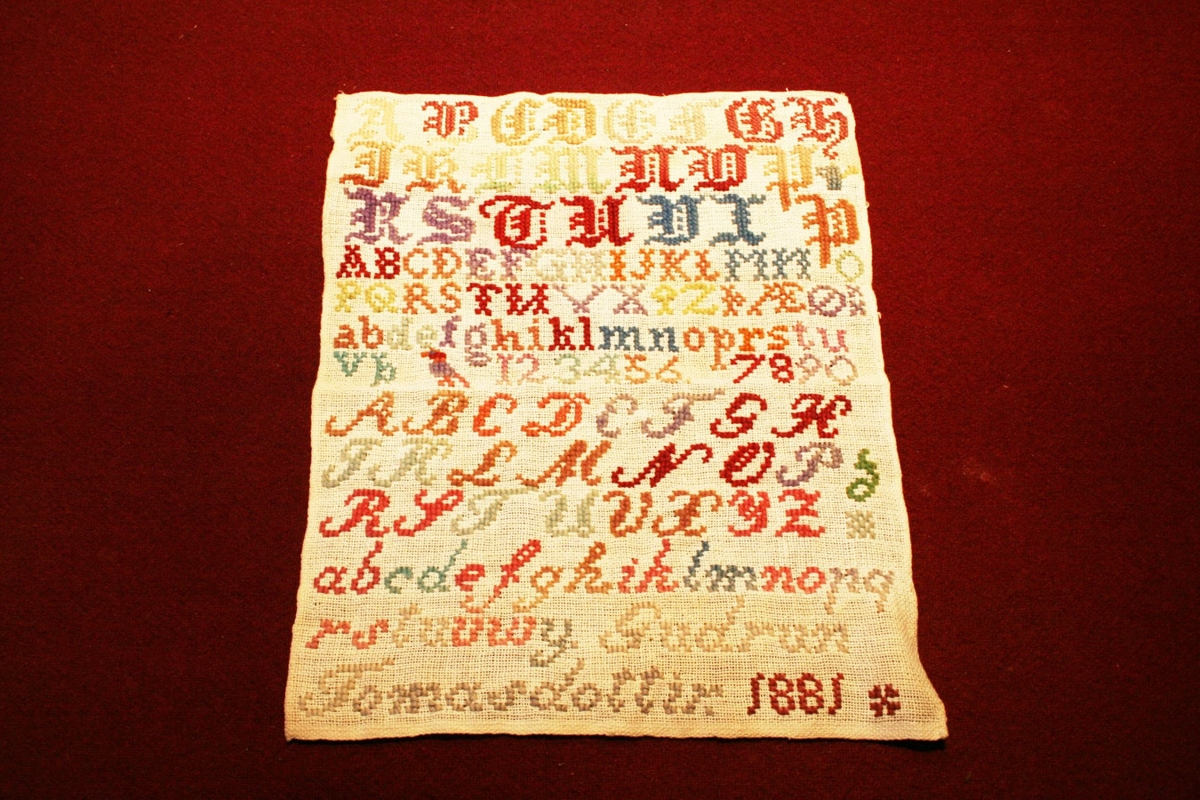 A B C D E F G H
I K L M N O P
R S T U V X Þ
ABCDEFGHIJKLMNO
PQRSTUVXYZÞÆÖ
abdefghiklmnoprstu
vþ 123456. 7890
A B C D E F G H
I K L M N O P
R S T U V X Y Z
abcdefghiklmnopq
rstuvwy Gudrun
Tomasdottir 1881